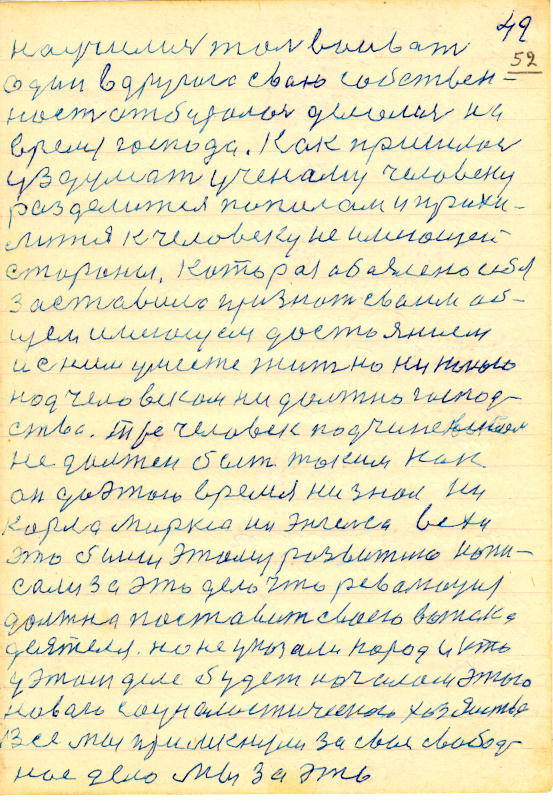 49
52
научился там воиват
один в другога сваю собствен-
ност отбиралоя делался на
время господа. Как пришлоя
уздумат ученаму человеку
разделится пополам и прихи-
лится к человеку не имеющей
стораны. Которая абаялено себя
заставила признат сваим об-
щем имеющем достоянием
и с ним уместе жит но никакого
над человеком ни должно господ-
ства. Тре человек подчине
не должен быт таким как
он до этога время ни знал ни
Карла Маркса ни Энгелса вехи
это были этаму развитию напи-
сали за эта дело что ревалюция
должна поставит своего вытока
деятеля. но не указали народ и кто
у этам деле будет началам этого
новаго социалостическога хозяйства
Все мы примкнули за своя свобод-
ное дело мы за эть